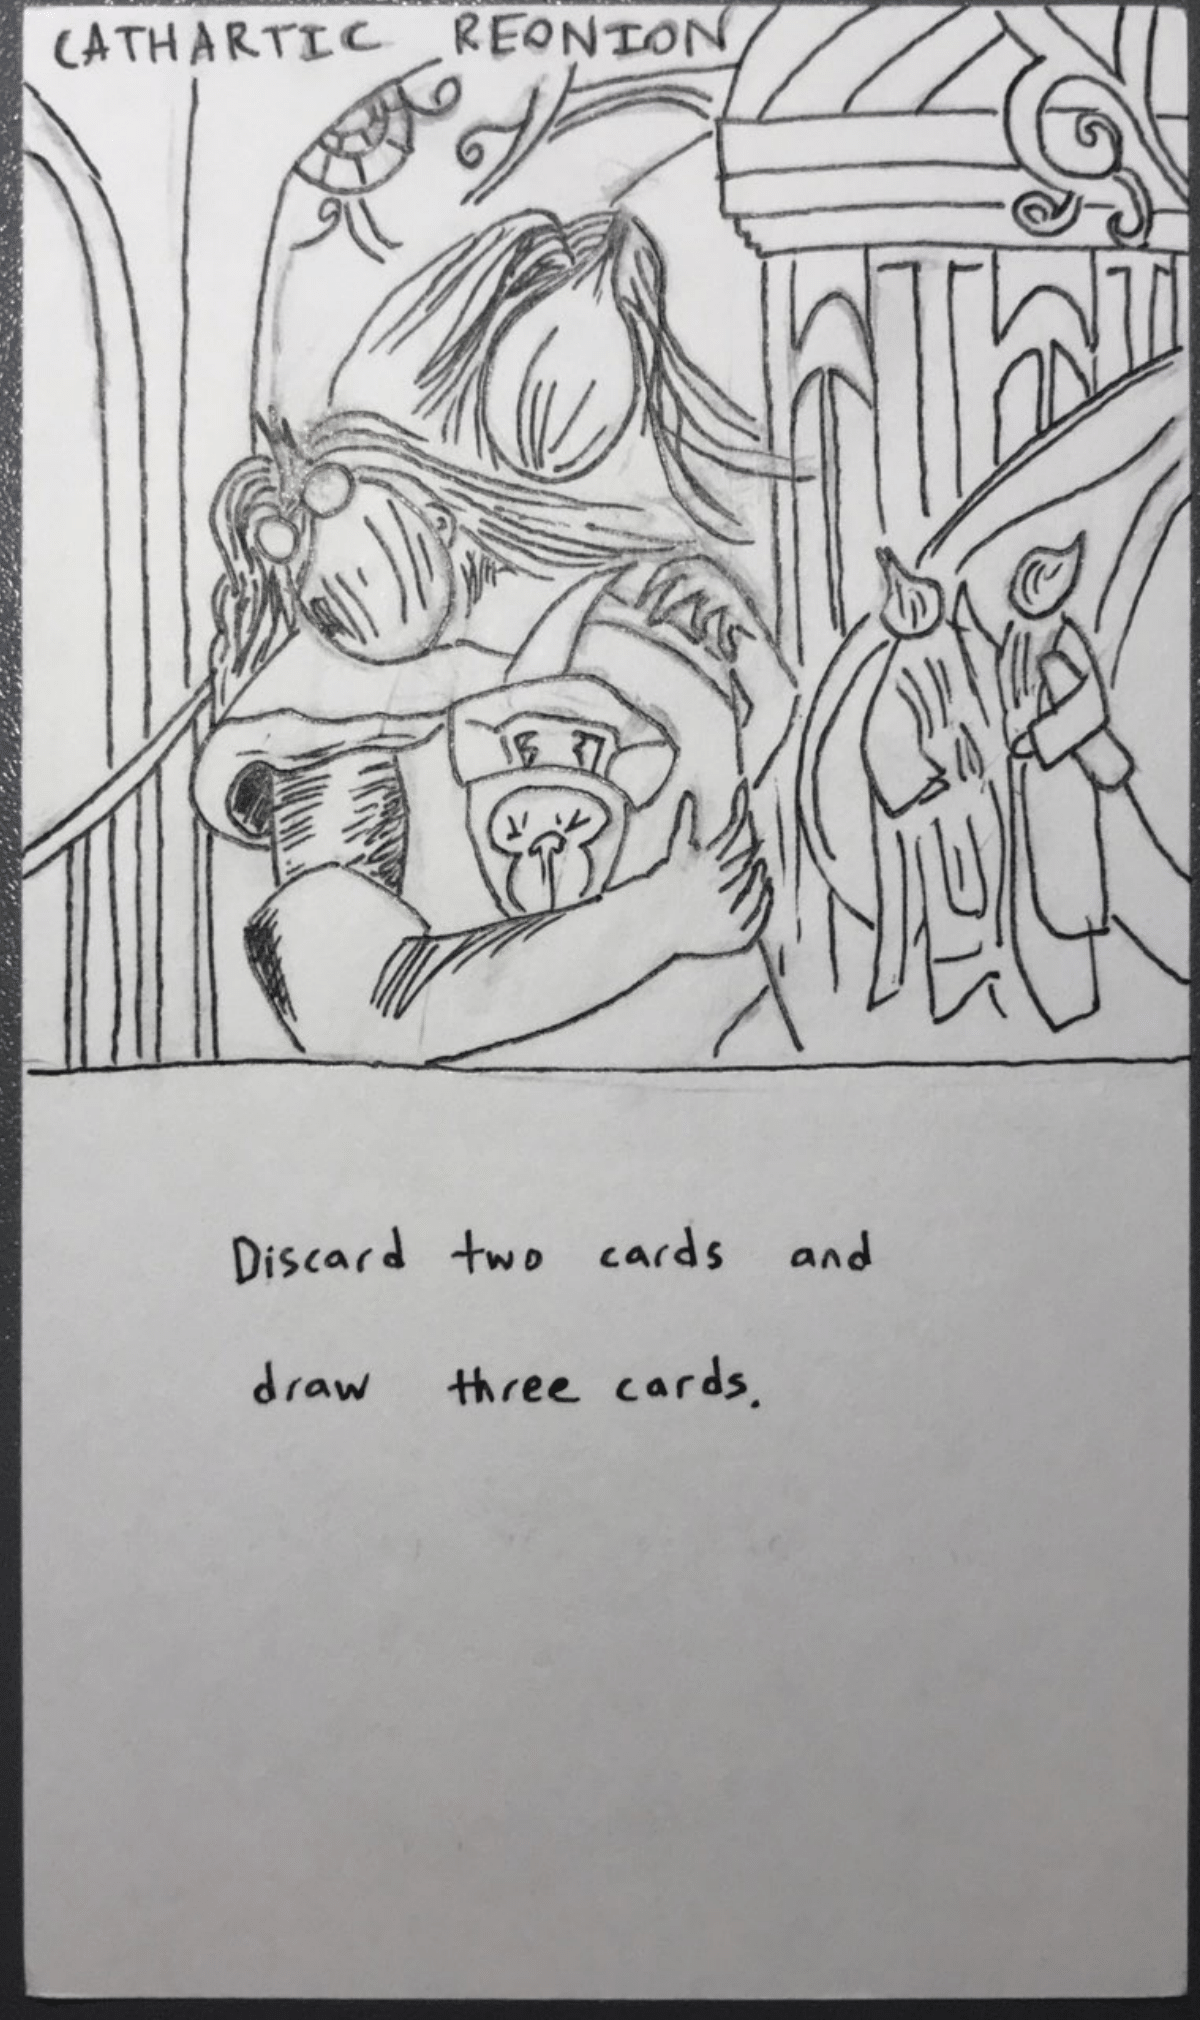 CATHARTIC REONION
Discard two cards and
draw three cards.